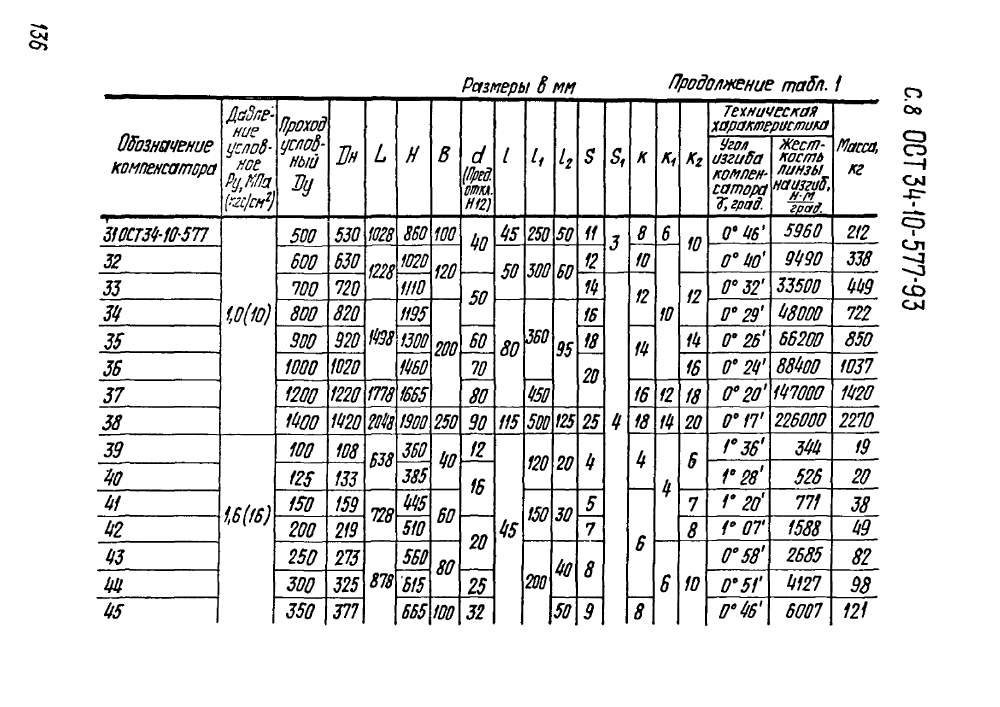 136
С.8 ОСТ 34-10-577-93
Размеры в мм
Продолжение табл. 1
Обозначение компенсатора | Давле-ние услов-ное Ру, МПа (кгс/см²) | Проход услов-ный Dу | Dн | L | H | B | d (Пред. откл. H12) | l | l₁ | l₂ | S | S₁ | к | к₁ | к₂ | Техническая характеристика | Угол изгиба компен-сатора γ, град. | Жест-кость линзы на изгиб, Н·м/град. | Масса, кг
31 ОСТ34-10-577 | 1,0(10) | 500 | 530 | 1028 | 860 | 100 | 40 | 45 | 250 | 50 | 11 | 3 | 8 | 6 | 10 | 0°46' | 5960 | 212
32 | 600 | 630 | 1228 | 1020 | 120 | 50 | 300 | 60 | 12 | 10 | 0°40' | 9490 | 338
33 | 700 | 720 | 1110 | 50 | 14 | 4 | 12 | 10 | 12 | 0°32' | 33500 | 449
34 | 800 | 820 | 1498 | 1195 | 200 | 80 | 360 | 95 | 16 | 0°29' | 48000 | 722
35 | 900 | 920 | 1300 | 60 | 18 | 14 | 14 | 0°26' | 66200 | 850
36 | 1000 | 1020 | 1460 | 70 | 20 | 16 | 0°24' | 88400 | 1037
37 | 1200 | 1220 | 1778 | 1665 | 80 | 450 | 16 | 12 | 18 | 0°20' | 147000 | 1420
38 | 1400 | 1420 | 2048 | 1900 | 250 | 90 | 115 | 500 | 125 | 25 | 18 | 14 | 20 | 0°17' | 226000 | 2270
39 | 1,6(16) | 100 | 108 | 638 | 360 | 40 | 12 | 45 | 120 | 20 | 4 | 4 | 4 | 6 | 1°36' | 344 | 19
40 | 125 | 133 | 385 | 16 | 1°28' | 526 | 20
41 | 150 | 159 | 728 | 445 | 60 | 150 | 30 | 5 | 6 | 7 | 1°20' | 771 | 38
42 | 200 | 219 | 510 | 20 | 7 | 8 | 1°07' | 1588 | 49
43 | 250 | 273 | 878 | 560 | 80 | 200 | 40 | 8 | 6 | 10 | 0°58' | 2685 | 82
44 | 300 | 325 | 615 | 25 | 0°51' | 4127 | 98
45 | 350 | 377 | 665 | 100 | 32 | 50 | 9 | 8 | 0°46' | 6007 | 121